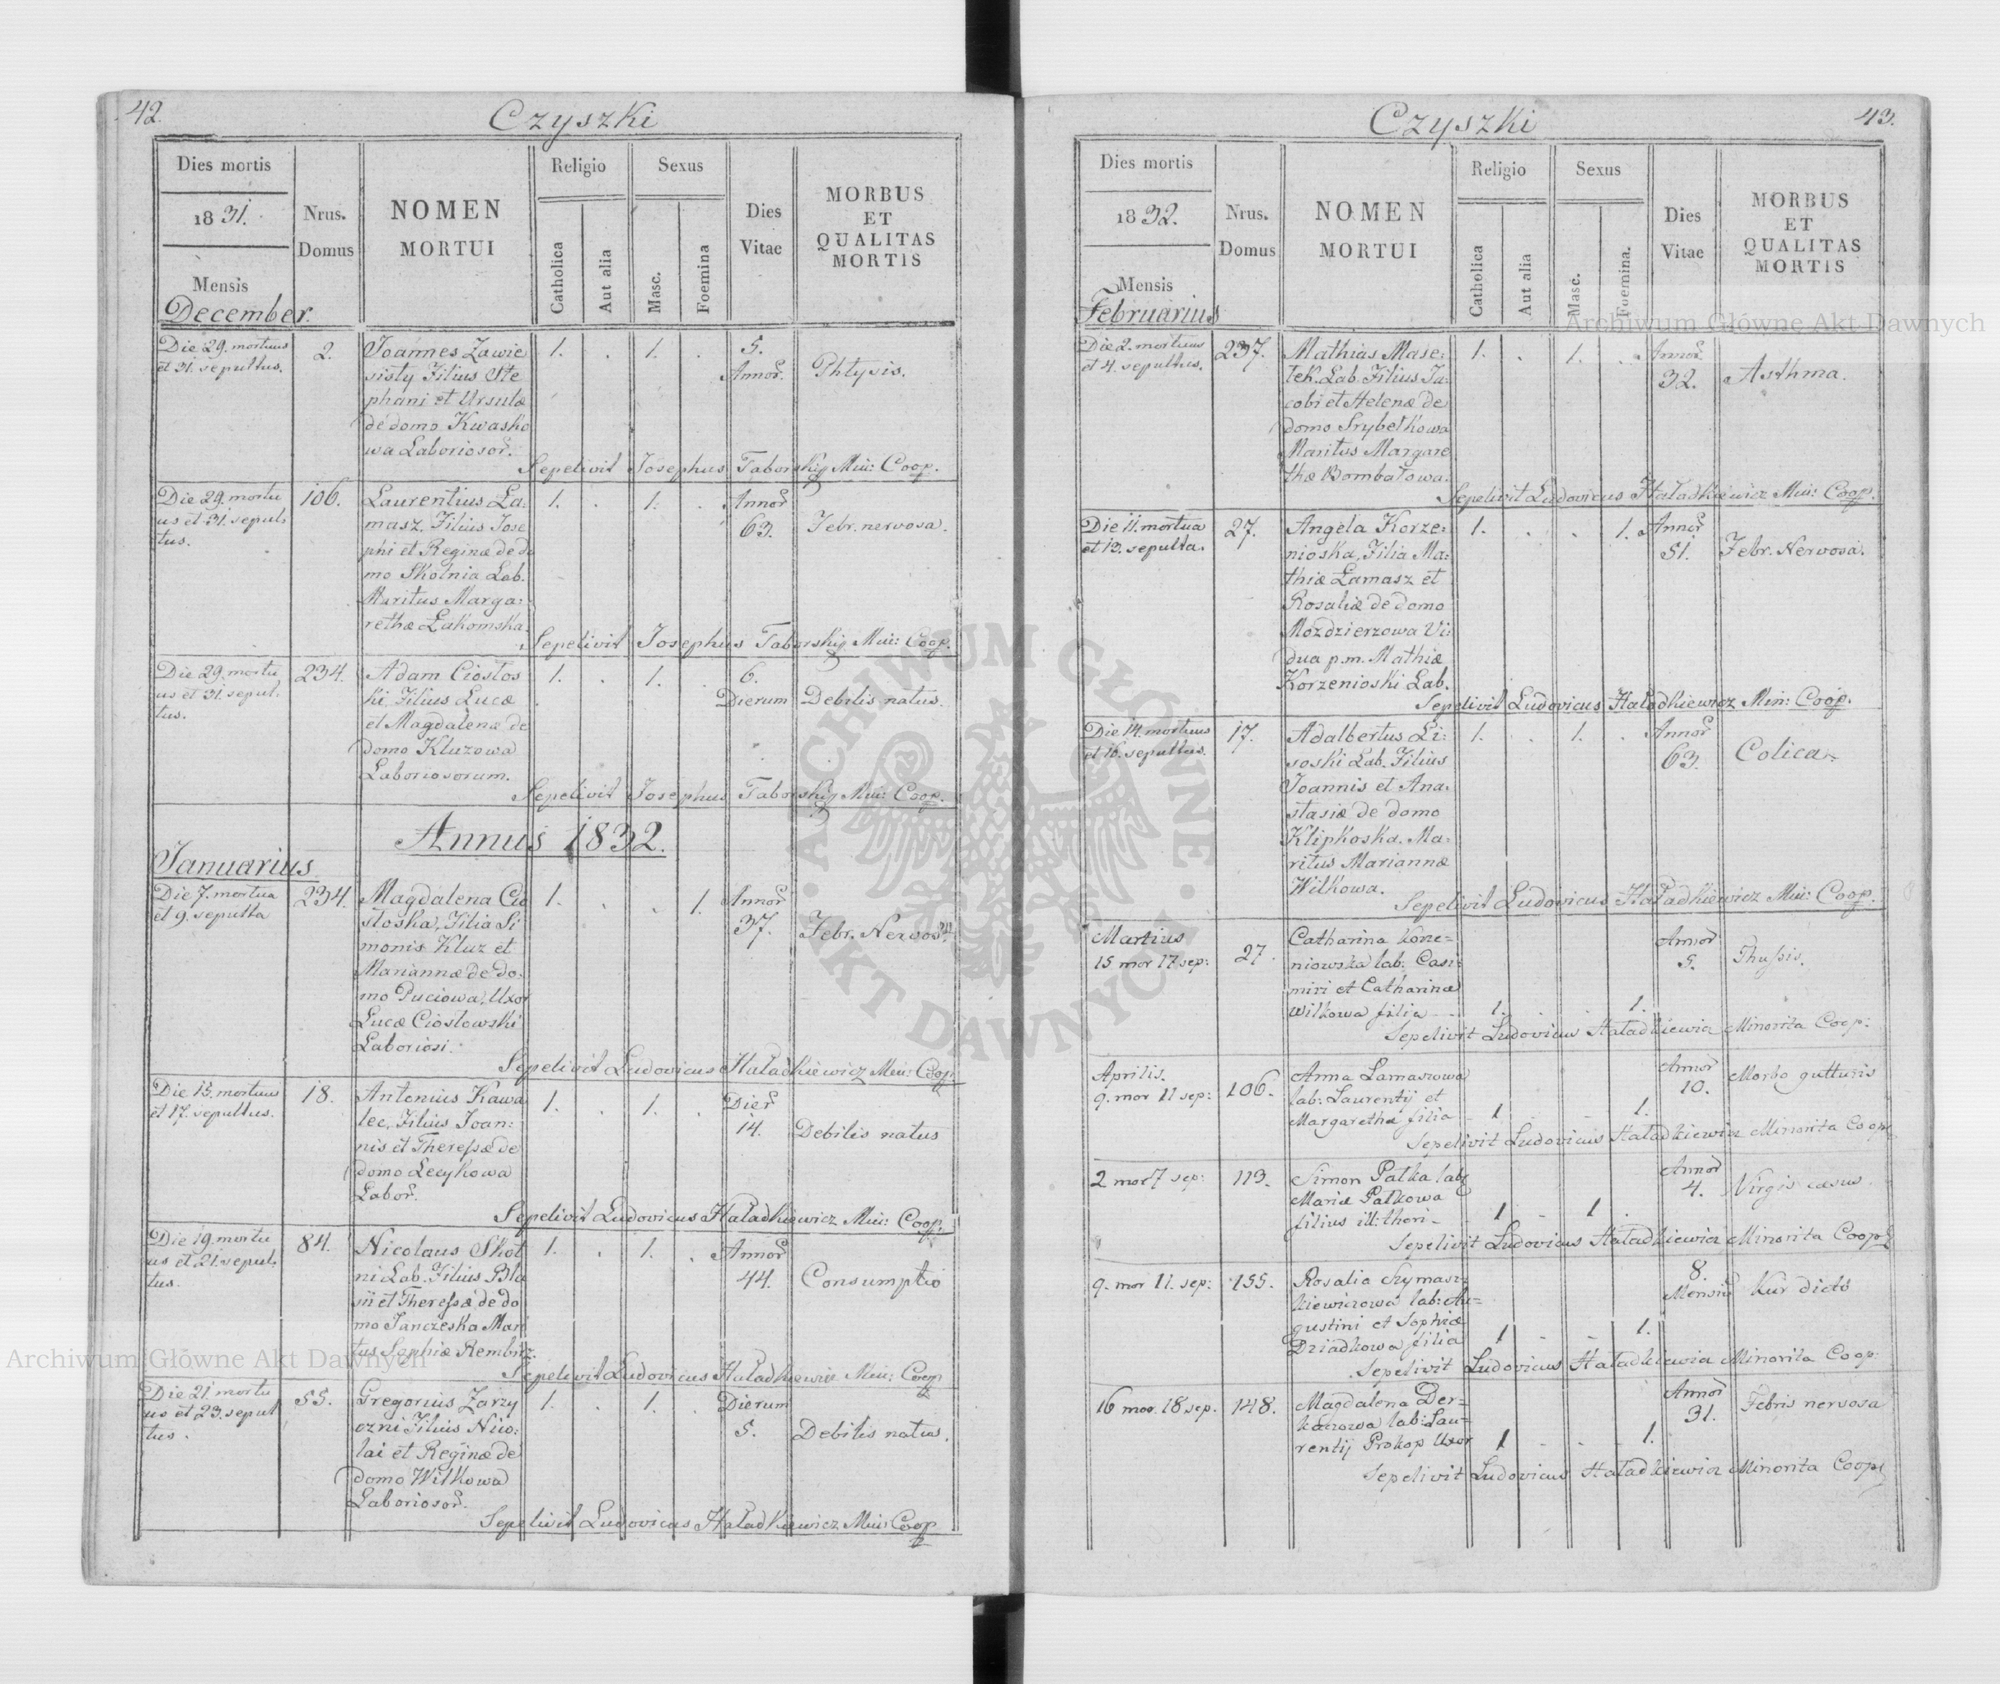 42.
Czyszki
Dies mortis
1831.
Mensis
December.
Nrus.
Domus
NOMEN
MORTUI
Religio
Catholica
Aut alia
Sexus
Masc.
Foemina
Dies
Vitae
MORBUS
ET
QUALITAS
MORTIS
Die 29. mortuus
et 31. sepultus.
2.
Joannes Zawie
sisty Filius Ste
phani et Ursulæ
de domo Kwasko
wa Laboriosor.
1. . 1. .
5.
Annor.
Phtysis.
Sepelivit Josephus Taborskij Min: Coop.
Die 29. mortu
us et 31. sepul:
tus.
106.
Laurentius Ła:
masz, Filius Jose
phi et Reginæ de do
mo Skolnia Lab.
Maritus Marga:
rethæ Łakomska.
1. . 1. .
Annor
63.
Febr. nervosa.
Sepelivit Josephus Taborskij Min: Coop.
Die 29. mortu
us et 31. sepul:
tus.
234.
Adam Ciostos
ki, Filius Lucæ
et Magdalenæ de
domo Kluzowa
Laboriosorum.
1. . 1. .
6.
Dierum
Debilis natus.
Sepelivit Josephus Taborskij Min: Coop.
Annus 1832.
Januarius
Die 7. mortua
et 9. sepulta
234.
Magdalena Cio
stoska, Filia Si
monis Kluz et
Mariannæ de do:
mo Puciowa, Uxor
Lucæ Ciostowski
Laboriosi.
1. . . 1.
Annor
37.
Febr. Nervosa.
Sepelivit Ludovicus Haładkiewicz Min: Coop.
Die 15. mortuus
et 17. sepultus.
18.
Antonius Kawa
lec, Filius Joan:
nis et Theressæ de
domo Lecykowa
Labor.
1. . 1. .
Dier
14.
Debilis natus
Sepelivit Ludovicus Haładkiewicz Min: Coop.
Die 19. mortu
us et 21. sepul:
tus.
84.
Nicolaus Skol
ni Lab. Filius Bla
sii et Theressæ de do
mo Janczeska Mari
tus Sophiæ Rembisz.
1. . 1. .
Annor
44.
Consumptio
Sepelivit Ludovicus Haładkiewicz Min: Coop
Die 21. mortu
us et 23. sepul
tus.
55.
Gregorius Zarzy
czni Filius Nico:
lai et Reginæ de
domo Wilkowa
Laboriosor.
1. . 1. .
Dierum
5.
Debilis natus.
Sepelivit Ludovicus Haładkiewicz Min: Coop
43.
Czyszki
Dies mortis
1832.
Mensis
Februarius
Nrus.
Domus
NOMEN
MORTUI
Religio
Catholica
Aut alia
Sexus
Masc.
Foemina.
Dies
Vitae
MORBUS
ET
QUALITAS
MORTIS
Die 2. mortuus
et 4. sepultus.
237.
Mathias Mase:
lek. Lab. Filius Ja:
cobi et Helenæ de
domo Srybelkowa
Maritus Margare
thæ Bombałowa.
1. . 1. .
Annor.
32.
Asthma.
Sepelivit Ludovicus Haładkiewicz Min: Coop.
Die 11. mortua
et 13. sepulta.
27.
Angela Korze:
nioska, Filia Ma:
thiæ Łamasz et
Rosaliæ de domo
Mozdzierzowa Vi:
dua p.m. Mathiæ
Korzenioski Lab.
1. . . 1.
Annor
51.
Febr. Nervosa.
Sepelivit Ludovicus Haładkiewicz Min: Coop.
Die 14. mortuus
et 16. sepultus.
17.
Adalbertus Li:
soski Lab. Filius
Joannis et Ana:
stasiæ de domo
Klipkoska. Ma:
ritus Mariannæ
Wilkowa.
1. . 1. .
Annor
63.
Colica.
Sepelivit Ludovicus Haładkiewicz Min: Coop.
Martius
15 mor 17 sep:
27.
Catharina Korze=
niowska lab: Casi=
miri et Catharinæ
Wilkowa filia
1. . . 1.
Annor
5.
Thussis.
Sepelivit Ludovicus Haładkiewicz Minorita Coop:
Aprilis.
9. mor 11 sep:
106.
Anna Lamaszowa
lab: Laurentij et
Margaretha filia
1 - - 1.
Annor
10.
Morbo gutturis
Sepelivit Ludovicus Haładkiewicz Minorita Coop
2 mor 7 sep:
113.
Simon Palka lab:
Mariæ Palkowa
filius ill: thori -
1 - 1 .
Annor
4.
Virgis cæsus.
Sepelivit Ludovicus Haładkiewicz Minorita Coop
9. mor 11. sep:
155.
Rosalia Szymasz=
kiewiczowa lab: Au=
gustini et Sophiæ
Dziadkowa filia
1 - - 1.
8.
Mensiu
Kur dicto
Sepelivit Ludovicus Haładkiewicz Minorita Coop
16 mor. 18 sep.
148.
Magdalena Der=
kaczowa lab: Lau=
rentij Prokop Uxor
1 - - 1.
Annor
31.
Febris nervosa
Sepelivit Ludovicus Haładkiewicz Minorita Coop
Archiwum Główne Akt Dawnych
Archiwum Główne Akt Dawnych
ARCHIWUM GŁÓWNE AKT DAWNYCH